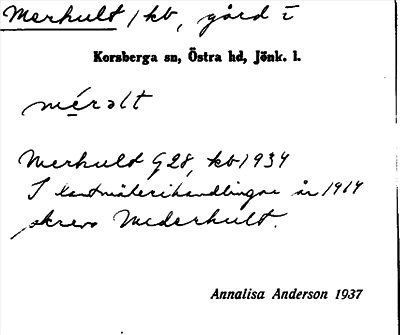 Merhult 1 kb, gård i
Korsberga sn, Östra hd, Jönk. l.
mérəlt
Merhult G 28, kb 1934
I lantmäterihandlingar år 1914
skrevs Mederhult.
Annalisa Anderson 1937